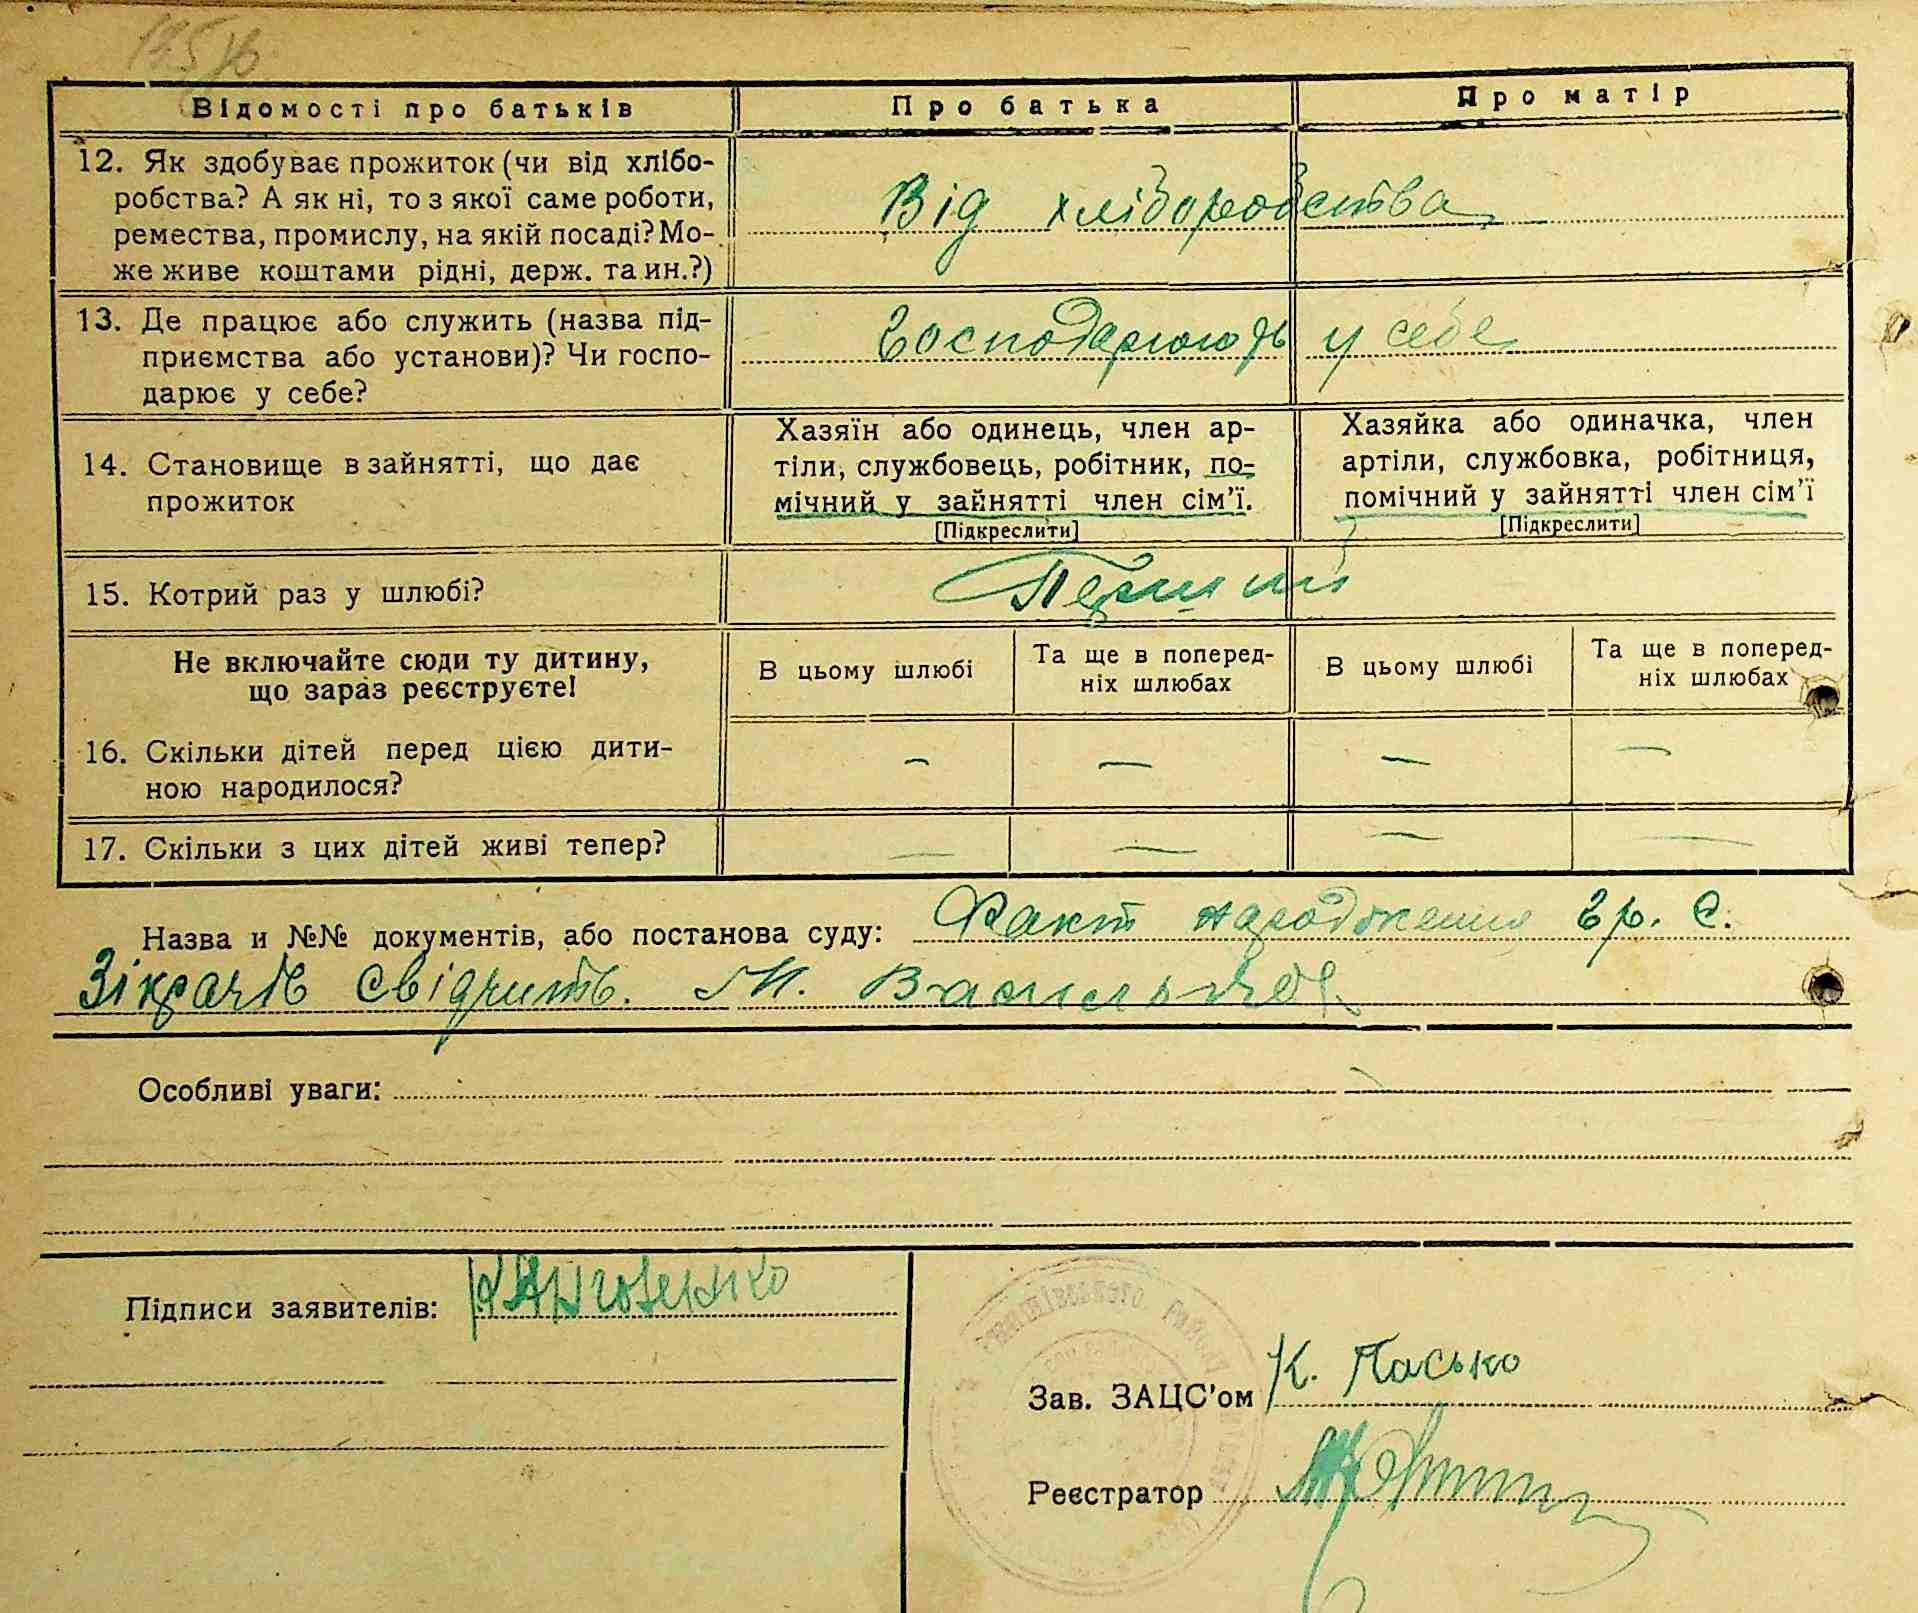 Відомості про батьків
Про батька
Про матір
12. Як здобуває прожиток (чи від хлібо-
робства? А як ні, то з якої саме роботи,
ремества, промислу, на якій посаді? Мо-
же живе коштами рідні, держ. та ин.?)
Від хліборобства
13. Де працює або служить (назва під-
приємства або установи)? Чи госпо-
дарює у себе?
Господарюють у себе
14. Становище в зайнятті, що дає
прожиток
Хазяїн або одинець, член ар-
тіли, службовець, робітник, по-
мічний у зайнятті член сім'ї.
[Підкреслити]
Хазяйка або одиначка, член
артіли, службовка, робітниця,
помічний у зайнятті член сім'ї
[Підкреслити]
15. Котрий раз у шлюбі?
Перший
Не включайте сюди ту дитину,
що зараз реєструєте!
В цьому шлюбі
Та ще в поперед-
ніх шлюбах
В цьому шлюбі
Та ще в поперед-
ніх шлюбах
16. Скільки дітей перед цією дити-
ною народилося?
— — — —
17. Скільки з цих дітей живі тепер?
— — — —
Назва и №№ документів, або постанова суду: Факт народження гр. С.
свідчить. М.
Особливі уваги:
Підписи заявителів:
Зав. ЗАЦС'ом К. Пасько
Реєстратор